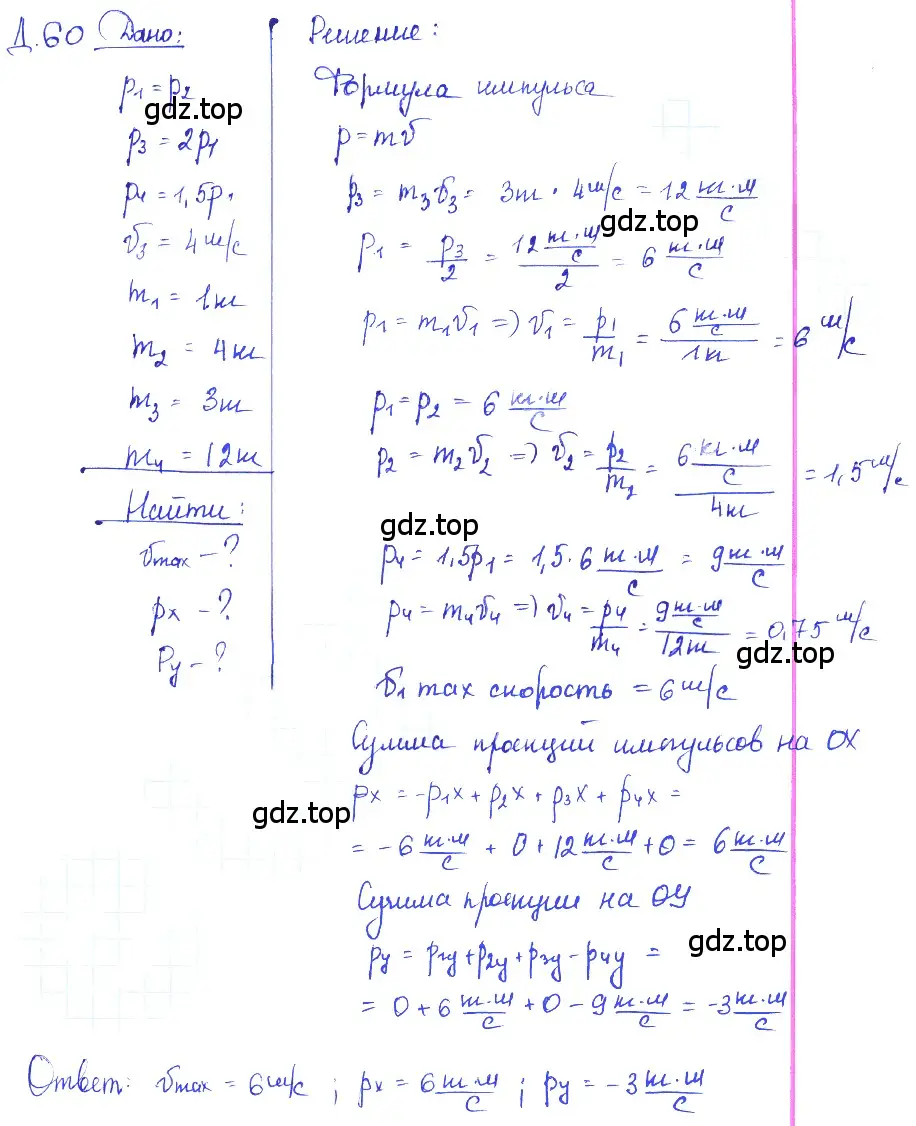 Д.60 Дано:
p₁ = p₂
p₃ = 2p₁
p₄ = 1,5p₁
v₃ = 4 м/с
m₁ = 1 кг
m₂ = 4 кг
m₃ = 3 кг
m₄ = 12 кг
Найти:
vmax – ?
px – ?
Py – ?
Решение:
Формула импульса
p = mv
p₃ = m₃v₃ = 3кг · 4 м/с = 12 кг·м/с
p₁ = p₃/2 = (12 кг·м/с)/2 = 6 кг·м/с
p₁ = m₁v₁ => v₁ = p₁/m₁ = (6 кг·м/с)/1кг = 6 м/с
p₁ = p₂ = 6 кг·м/с
p₂ = m₂v₂ => v₂ = p₂/m₂ = (6 кг·м/с)/4кг = 1,5 м/с
p₄ = 1,5p₁ = 1,5 · 6 кг·м/с = 9 кг·м/с
p₄ = m₄v₄ => v₄ = p₄/m₄ = (9 кг·м/с)/12кг = 0,75 м/с
v₁ max скорость = 6 м/с
Сумма проекций импульсов на OX
px = -p₁x + p₂x + p₃x + p₄x =
= -6 кг·м/с + 0 + 12 кг·м/с + 0 = 6 кг·м/с
Сумма проекции на OY
py = p₁y + p₂y + p₃y - p₄y =
= 0 + 6 кг·м/с + 0 - 9 кг·м/с = -3 кг·м/с
Ответ: vmax = 6 м/с ; px = 6 кг·м/с ; py = -3 кг·м/с
gdz.top
gdz.top
gdz.top
gdz.top
gdz.top
gdz.top